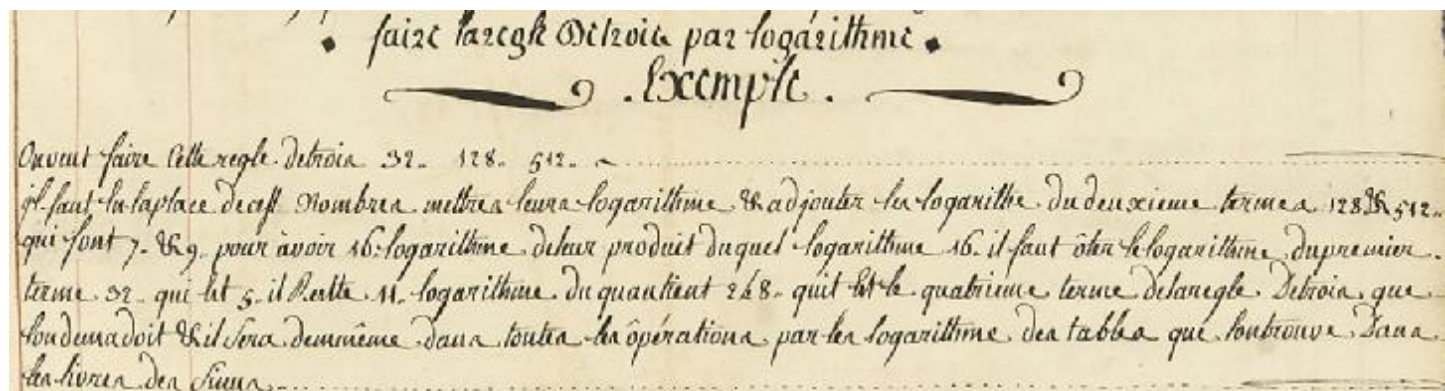 faire la regle De trois par logárithme.
. Exemple .
On veut faire Cette regle . de trois 32 .. 128 .. 512 ..
il faut En la place de cest Nombres mettres leurs logarithme & adjouter les logarithe . du deuxieme termes 128 & 512 ..
qui sont 7 . & 9 . pour avoir 16 . logarithme de leur produit du quel logarithme 16 . il faut ôter le logarithme du premier .
terme 32 . qui Est 5 . il Restte 11 . logarithme du quantient 248 . quit Est le quatrieme terme de la regle De trois . que
lon demadoit & il sera de mmême dans toutes les ôpérations par les logarithme des tables que lon trouve Dans
les livres des Sinus